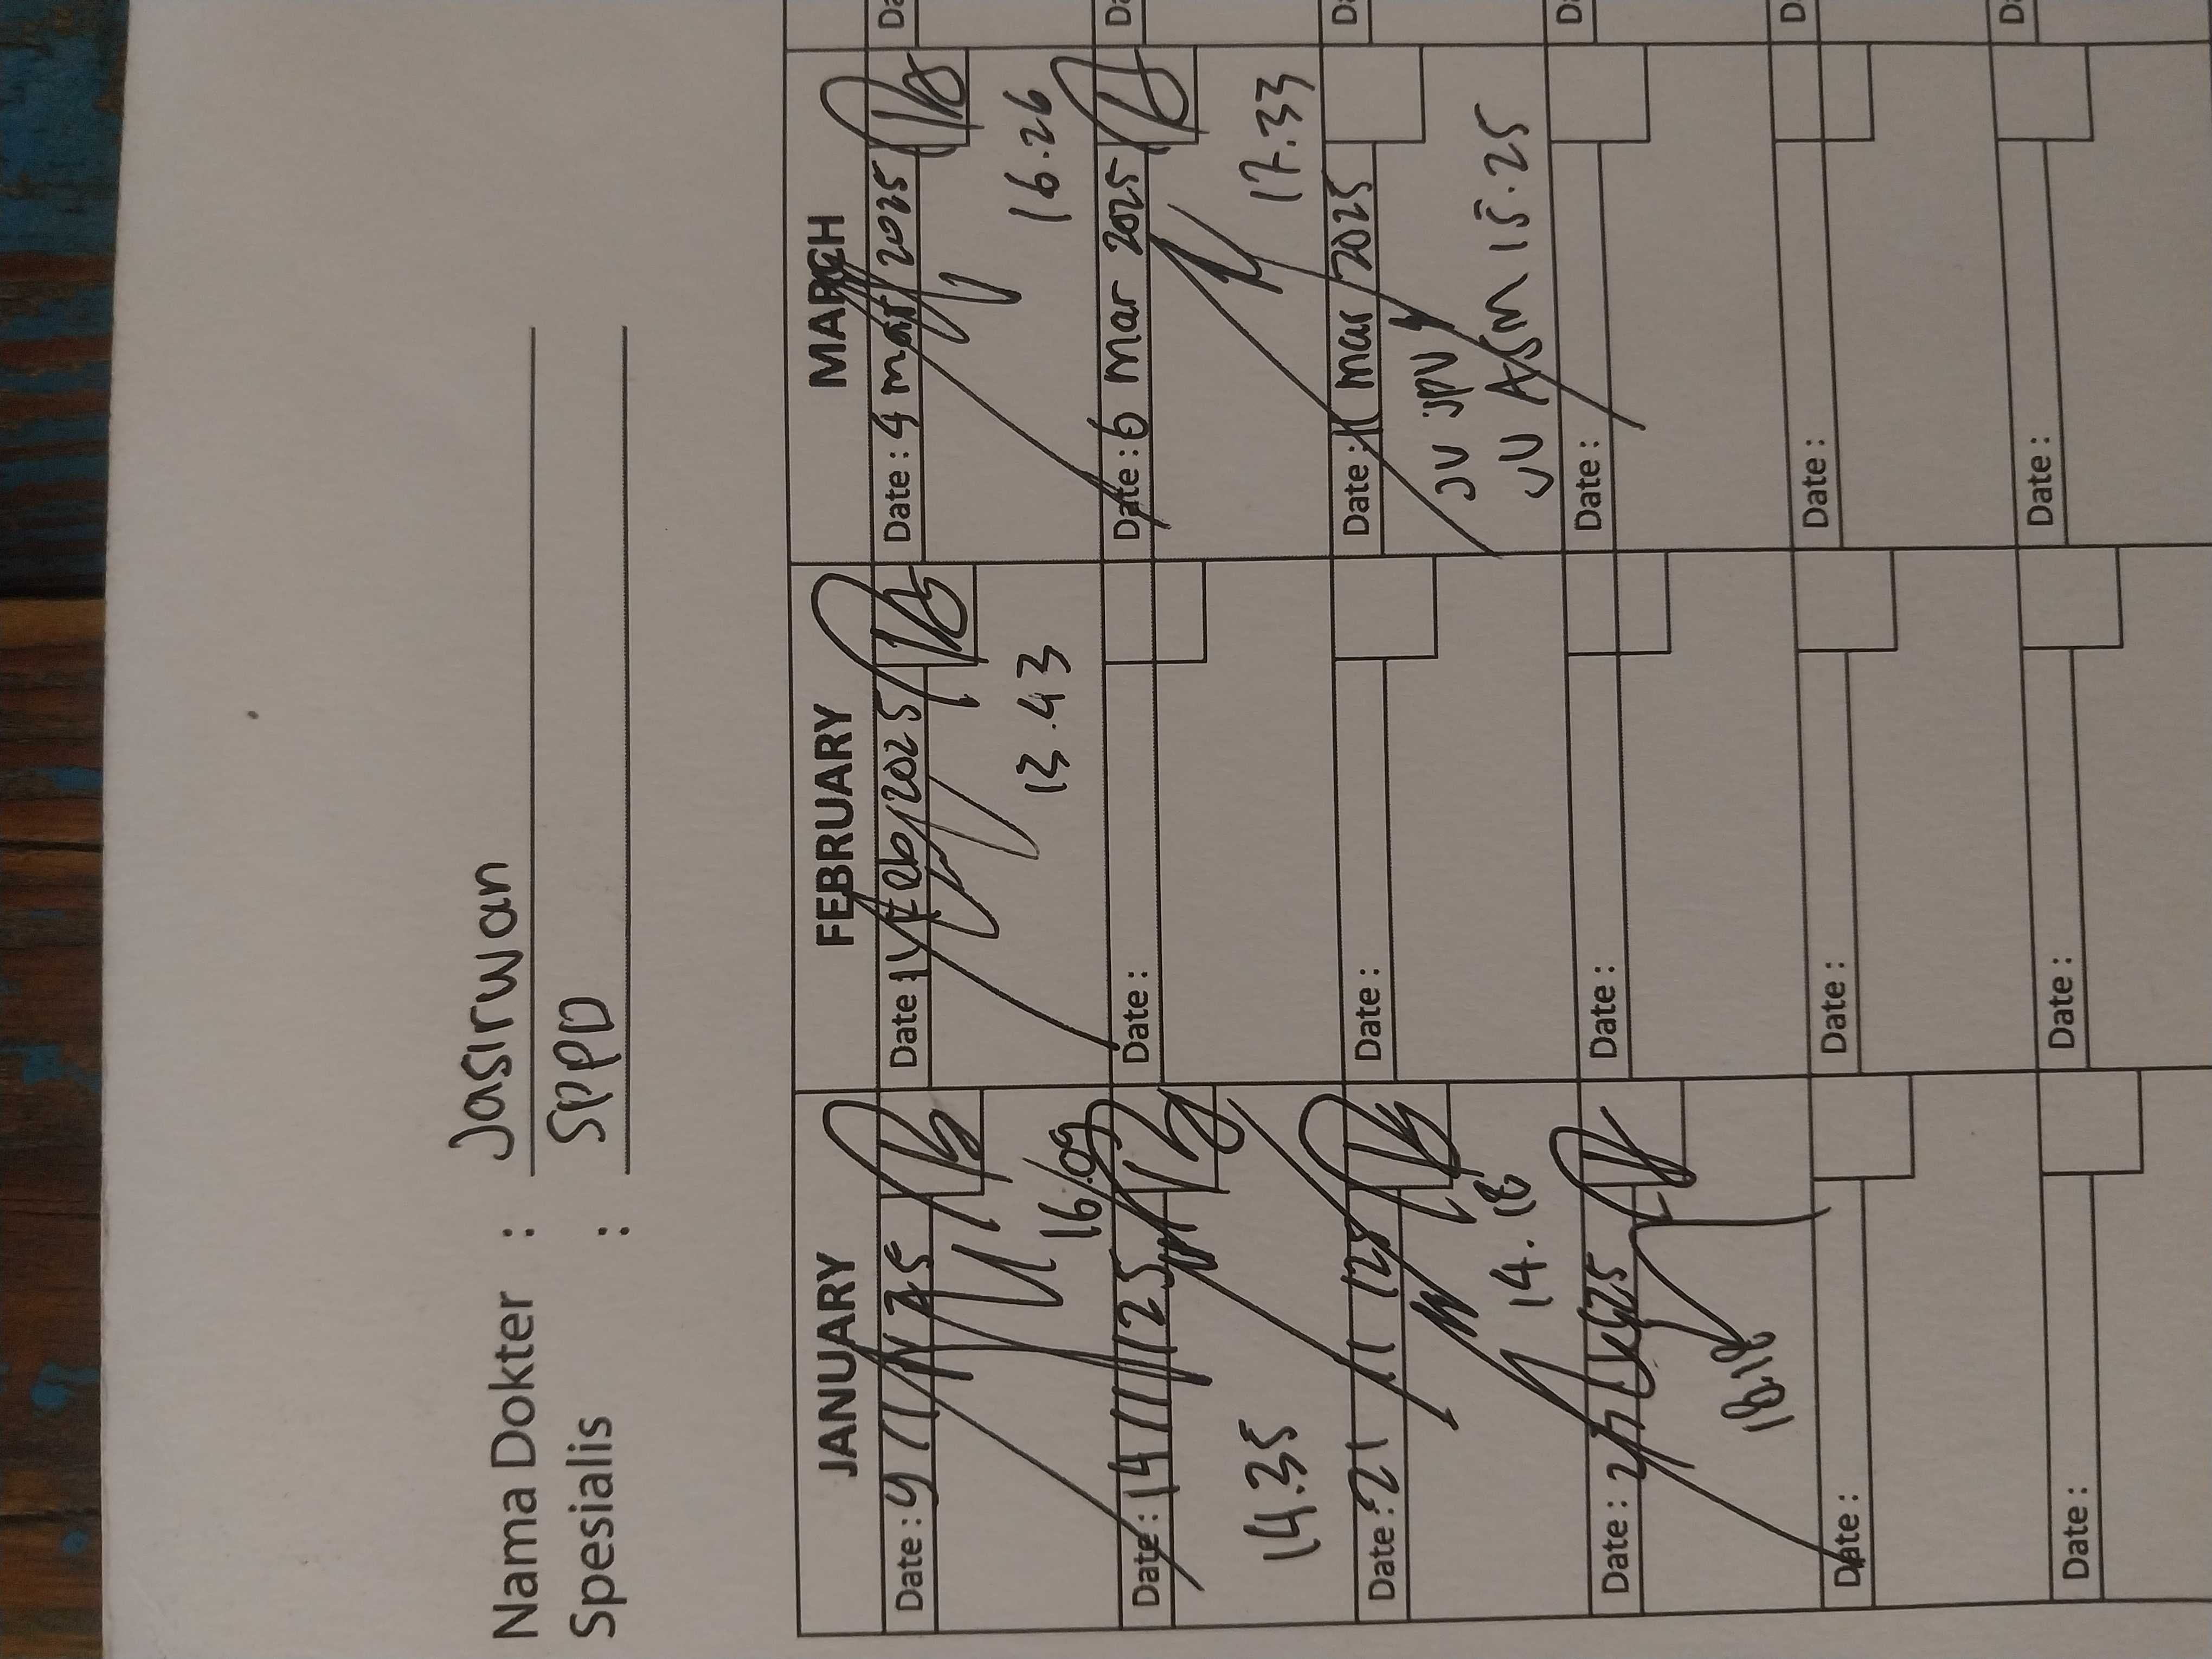 Nama Dokter : Jasirwan
Spesialis : SPPD
JANUARY FEBRUARY MARCH
Date : 9 / 1 / 25
16.09
Date : 14 / 1 / 25
14.35
Date : 21 / 1 / 25
14.18
Date :
18.18
Date :
Date :
Date : 14 Feb 2025
13.43
Date :
Date :
Date :
Date :
Date :
Date : 4 mar 2025
16.26
Date : 6 mar 2025
17.33
Date : 11 mar 2025
JV JPV
JV ASM 15.25
Date :
Date :
Date :